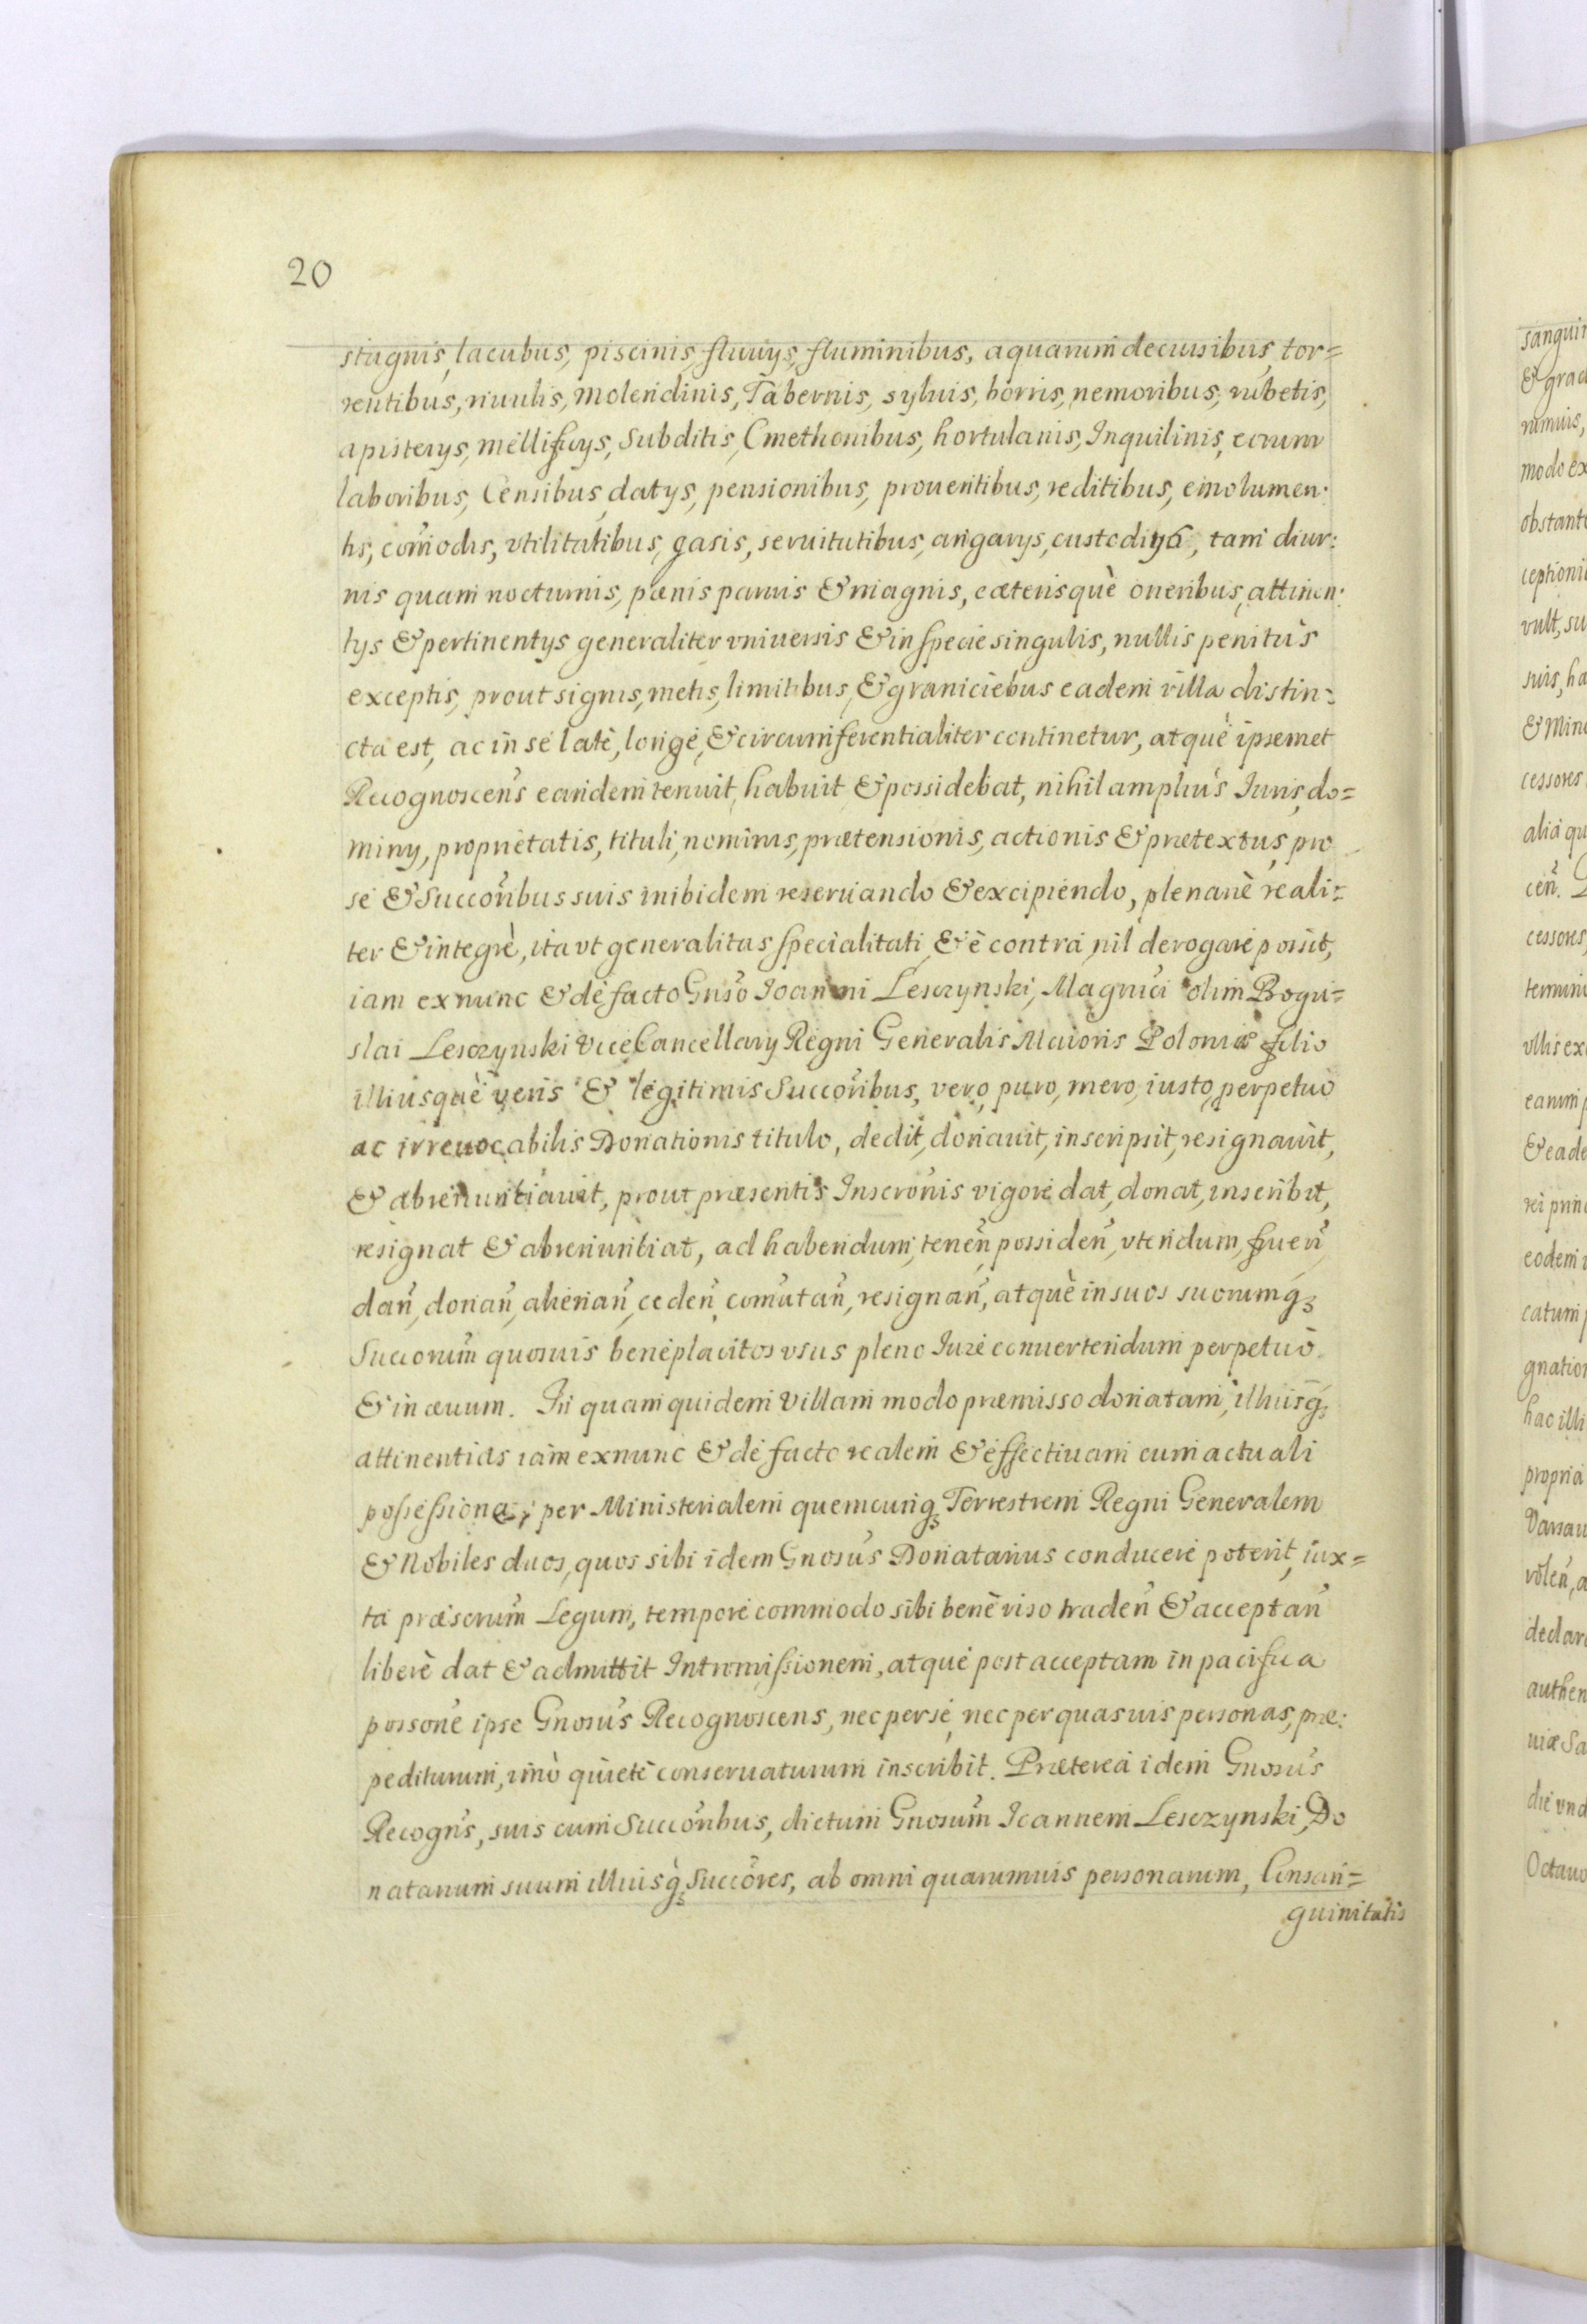 20
stagnis, lacubus, piscinis, fluuijs, fluminibus, aquarum decursibus, tor=
rentibus, riuulis, molendinis, Tabernis, syluis, borris, nemoribus, rubetis,
apisterijs, mellificijs, Subditis, Cmethonibus, hortulanis, Inquilinis, eorum
laboribus, Censibus, datijs, pensionibus, prouentibus, reditibus, emolumen:
tis, com̃odis, vtilitatibus, gasis, seruitutibus, angarijs, custodijs, tam diur:
nis quam nocturnis, pænis paruis & magnis, cæterisquè oneribus, attinen:
tijs & pertinentijs generaliter vniuersis & in specie singulis, nullis penitùs
exceptis, prout signis, metis, limitibus, & graniciebus eadem villa distin:
cta est, ac in se latè, longè, & circumferentialiter continetur, atquè ipsemet
Recognoscens eandem tenuit, habuit & possidebat, nihil ampliùs Iuris, do=
minij, proprietatis, tituli, nominis, prætensionis, actionis & prætextus, pro
se & Succoribus suis inibidem reseruando & excipiendo, plenariè reali=
ter & integrè, ita vt generalitas specialitati, & è contra nil derogare possit,
iam ex nunc & de facto Gnso Ioanni Lesczynski, Magnici olim Bogu=
slai Lesczynski ViceCancellarij Regni Generalis Maioris Poloniæ filio
illiusquè veris & legitimis Succoribus, vero, puro, mero, iusto, perpetuo
ac irreuocabilis Donationis titulo, dedit, donauit, inscripsit, resignauit,
& abrenuntiauit, prout præsentis Inscronis vigore dat, donat, inscribit,
resignat & abrenuntiat, ad habendum, tenen̄, possiden̄, vtendum, fruen̄,
dan̄, donan̄, alienan̄, ceden̄, comutan̄, resignan̄, atquè in suos suorumq́ꝫ
Succorum̄ quosuis beneplacitos vsus pleno Iure conuertendum perpetuò
& in æuum. In quam quidem Villam modo præmisso donatam, illiusq́ꝫ
attinentias iam ex nunc & de facto realem & effectiuam cum actuali
possessione, per Ministerialem quemcunqꝫ Terrestrem Regni Generalem
& Nobiles duos, quos sibi idem Gnosus Donatarius conducere poterit, iux=
ta præscrum̄ Legum, tempore commodo sibi benè viso traden̄ & acceptan̄
liberè dat & admittit Intromissionem, atquè post acceptam in pacifica
possone ipse Gnosus Recognoscens, nec per se, nec per quasuis personas, præ:
pediturum, imò quietè conseruaturum inscribit. Præterea idem Gnosus
Recogns, suis cum Succoribus, dictum Gnosum Ioannem Lesczynski, Do
natarium suum illiusq̀ꝫ Succores, ab omni quarumuis personarum, Consan=
guinitatis